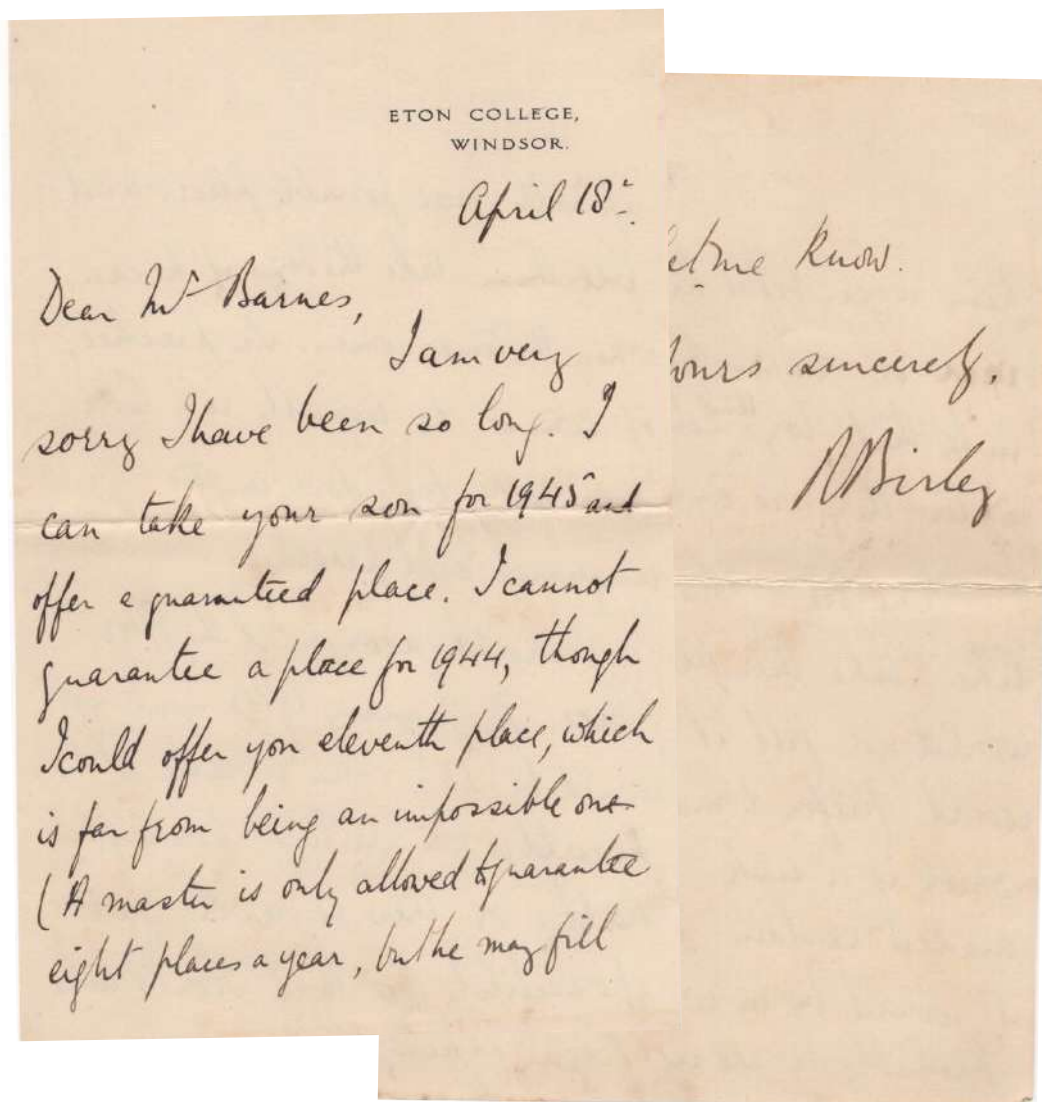 ETON COLLEGE,
WINDSOR.
April 18th.
Dear Mr Barnes,
I am very
sorry I have been so long. I
can take your son for 1945 and
offer a guaranteed place. I cannot
guarantee a place for 1944, though
I could offer you eleventh place, which
is far from being an impossible one.
(A master is only allowed to guarantee
eight places a year, but he may fill
let me know.
Yours sincerely,
R Birley